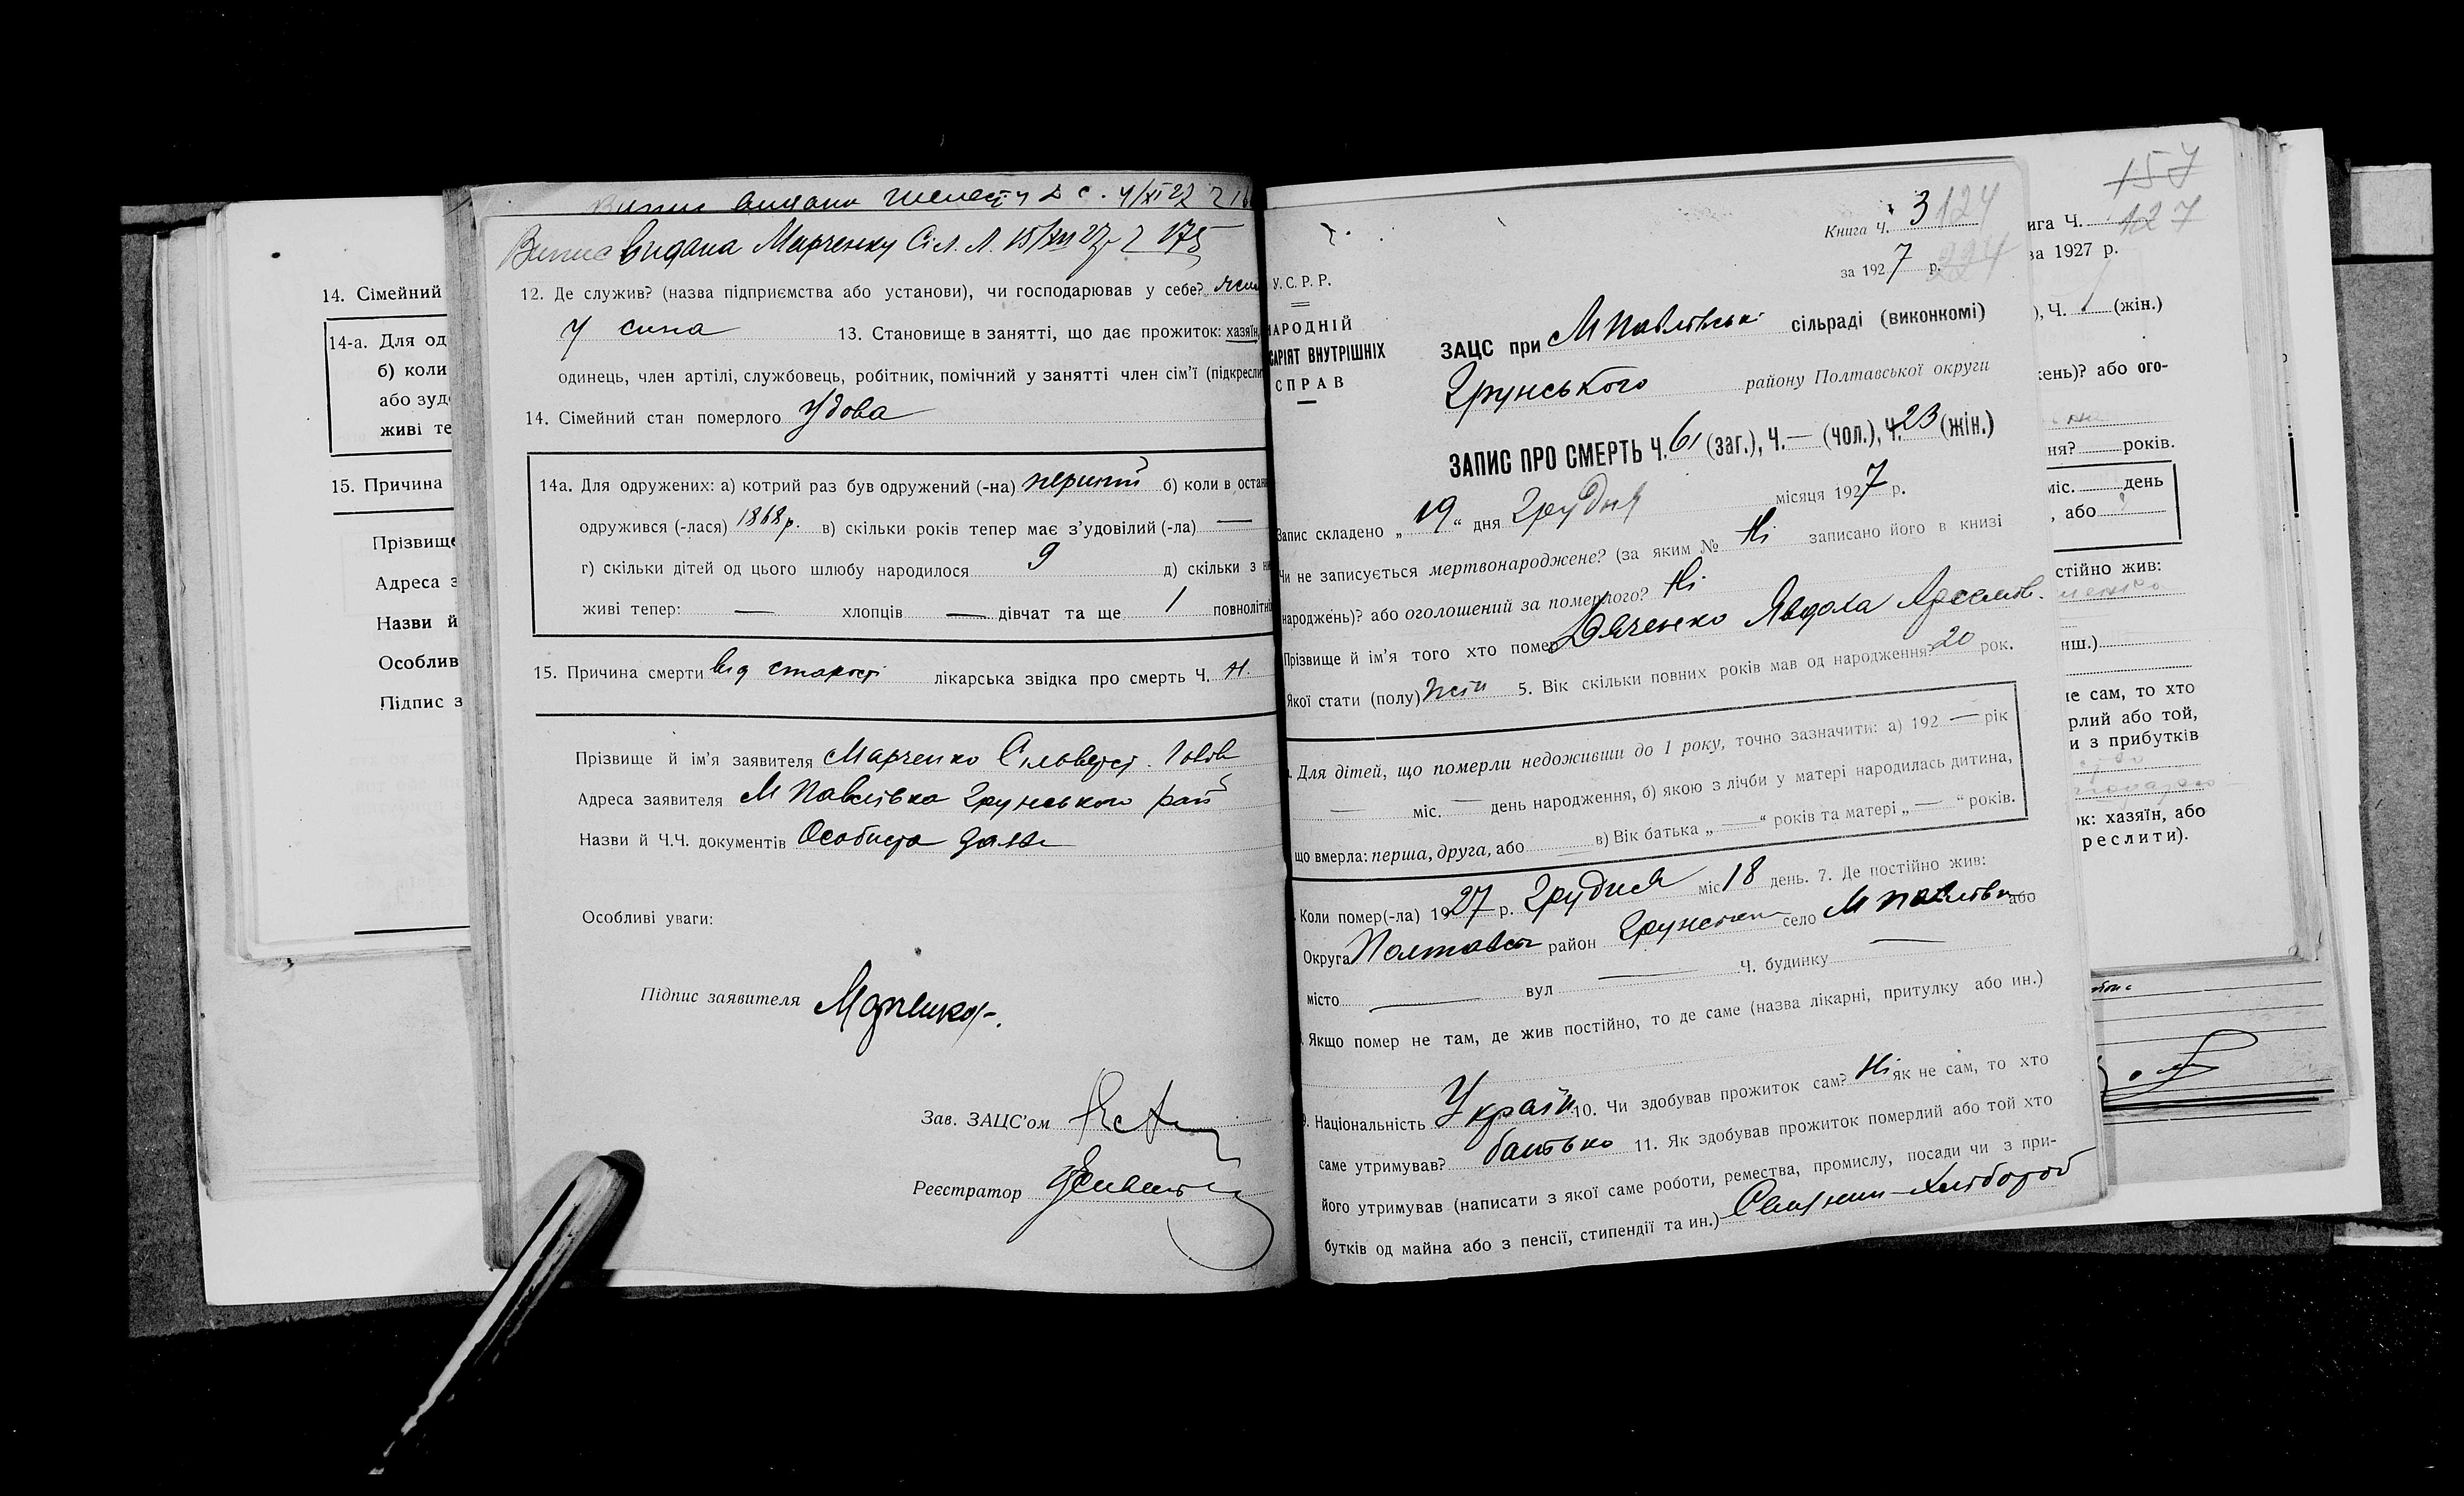 14. Сімейний
14-а. Для од
б) коли
або зуд
живі те
15. Причина
Прізвище
Адреса з
Назви й
Особлив
Підпис з
Випис видана
Випис видана Марченку Сіл. Л. 15/XII 27р 175
12. Де служив? (назва підприємства або установи), чи господарював у себе?
у сина 13. Становище в занятті, що дає прожиток: хазяїн,
одинець, член артілі, службовець, робітник, помічний у занятті член сім'ї (підкресли
14. Сімейний стан померлого Удова
14а. Для одружених: а) котрий раз був одружений (-на) перший б) коли в остан
одружився (-лася) 1868р. в) скільки років тепер має з'удовілий (-ла) —
г) скільки дітей од цього шлюбу народилося 9 д) скільки з ни
живі тепер: — хлопців — дівчат та ще 1 повнолітн
15. Причина смерти від старості лікарська звідка про смерть Ч. Н.
Прізвище й ім'я заявителя Марченко Сільверст
Адреса заявителя М Павлівка Грунського рай
Назви й Ч.Ч. документів Особиста заява
Особливі уваги:
Підпис заявителя Марченко
Зав. ЗАЦС'ом
Реєстратор
Книга Ч. 3 124
за 1927 р. 224
У.С.Р.Р.
НАРОДНІЙ
САРІЯТ ВНУТРІШНІХ
СПРАВ
ЗАЦС при М Павлівські сільраді (виконкомі)
Грунського району Полтавської округи
ЗАПИС ПРО СМЕРТЬ Ч. 61 (заг.), Ч. — (чол.), Ч. 23 (жін.)
Запис складено „19“ дня Грудня місяця 1927 р.
Чи не записується мертвонароджене? (за яким № Ні записано його в книзі
народжень)? або оголошений за померлого? Ні
Прізвище й ім'я того хто помер Дяченко Явдоха
Якої стати (полу) жін 5. Вік скільки повних років мав од народження? 20 рок.
Для дітей, що померли недоживши до 1 року, точно зазначити: а) 192 — рік
— міс. — день народження, б) якою з лічби у матері народилась дитина,
що вмерла: перша, друга, або в) Вік батька „ — “ років та матері „ — “ років.
Коли помер(-ла) 1927 р. Грудня міс 18 день. 7. Де постійно жив:
Округа Полтавсь район Грунськ село М Павлівка або
місто — вул — Ч. будинку —
Якщо помер не там, де жив постійно, то де саме (назва лікарні, притулку або ин.)
9. Національність Україн 10. Чи здобував прожиток сам? Ні як не сам, то хто
саме утримував? батько 11. Як здобував прожиток померлий або той хто
його утримував (написати з якої саме роботи, ремества, промислу, посади чи з при-
бутків од майна або з пенсії, стипендії та ин.) Селянин-Хлібороб
157
ига Ч. 127
за 1927 р.
), Ч. (жін.)
жень)? або ого-
ня? років.
міс. день
, або
стійно жив:
нш.)
не сам, то хто
рлий або той,
и з прибутків
ок: хазяїн, або
реслити).